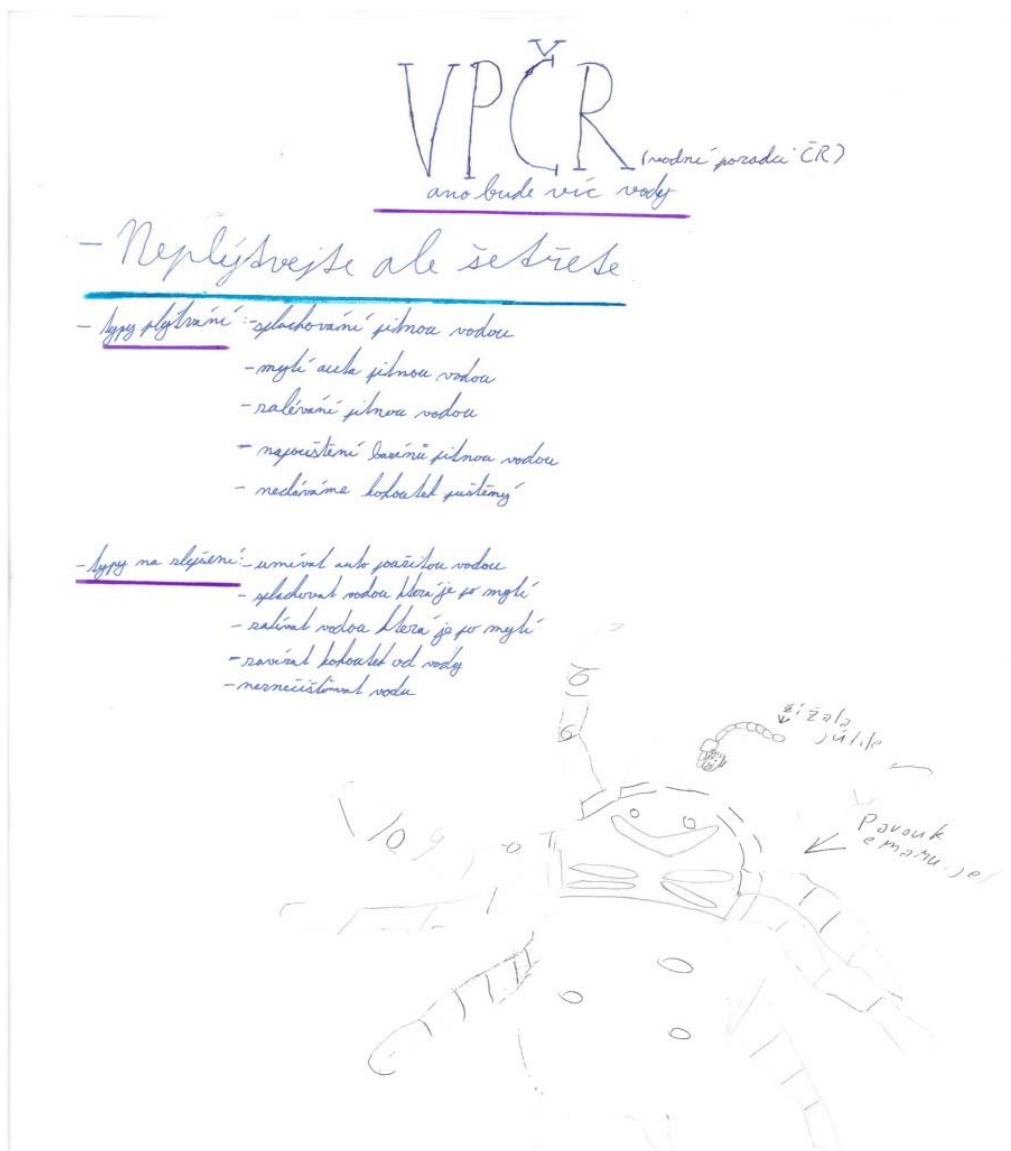 VPČR
(vodní poradci ČR)
ano bude víc vody
- Neplýtvejte ale šetřete
- typy plýtvání: - splachování pitnou vodou
- mytí auta pitnou vodou
- zalévání pitnou vodou
- napouštění bazénů pitnou vodou
- nedáváme kohoutek puštěný
- typy na zlepšení: - umívat auto použitou vodou
- splachovat vodou která je po mytí
- zalívat vodou která je po mytí
- zavírat kohoutek od vody
- neznečišťovat vodu
žížala
júlije
Pavouk
emanujel